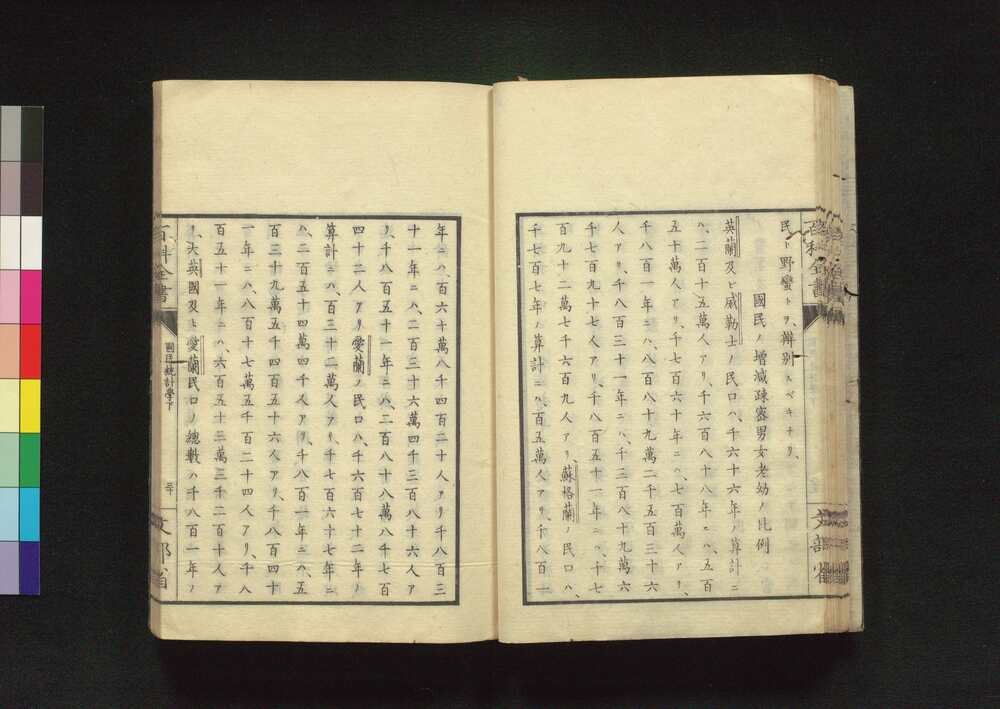 民ト野蠻トヲ、辨別スベキナリ、
國民ノ增減疎密男女老幼ノ比例
英蘭及ビ威勒士ノ民口ハ、千六十六年ノ算計ニ
ハ、二百十五萬人アリ、千六百八十八年ニハ、五百
五十萬人アリ、千七百六十年ニハ、七百萬人アリ、
千八百一年ニハ、八百八十九萬二千五百三十六
人アリ、千八百三十一年ニハ、千三百八十九萬六
千七百九十七人アリ、千八百五十一年ニハ、千七
百九十二萬七千六百九人アリ、蘇格蘭ノ民口ハ、
千七百七年ノ算計ニハ、百五萬人アリ、千八百一
年ニハ、百六十萬八千四百二十人アリ千八百三
十一年ニハ、二百三十六萬四千三百八十六人ア
リ、千八百五十一年ニハ、二百八十八萬八千七百
四十二人アリ愛蘭ノ民口ハ、千六百七十二年ノ
算計ニハ、百三十二萬人アリ、千七百六十七年ニ
ハ、二百五十四萬四千人アリ、千八百一年ニハ、五
百三十九萬五千四百五十六人アリ、千八百四十
一年ニハ、八百十七萬五千百二十四人アリ、千八
百五十一年ニハ、六百五十三萬三千二百十人ア
リ、大英國及ヒ愛蘭民口ノ總數ハ千八百一年ノ
百科全書
國民統計學下
文部省
百科全書
文部省